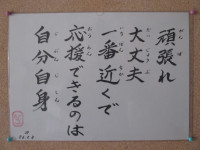 頑張れ
大丈夫
一番近くで
応援できるのは
自分自身